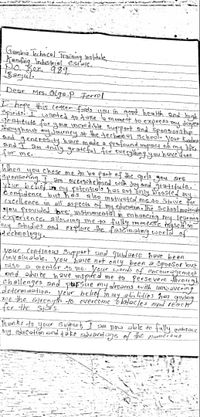 Gambia Technical Training Institute,
Kanifing Industrial Estate,
P.O. Box 989,
Banjul.
Dear Mrs. Olga P. Ferrol
I hope this letter finds you in good health and high
spirits. I wanted to take a moment to express my deepest
gratitude for your incredible support and sponsorship
throughout my journey at the technical school. Your kindness
and generosity have made a profound impact on my life
and I am truly grateful for everything you have done
for me.
When you chose me to be part of the girls you are
sponsoring I am overwhelmed with joy and gratitude.
Your belief in my potentials has not only boosted my
confidence but has also motivated me to strive for
excellence in all aspects of my education. The
you provided have instrumental in enhancing my learning
experience, allowing me to fully immerse myself in
my studies and explore the fascinating world of
technology.
Your continuous support and guidance have been
invaluable. You have not only been a sponsor but
also a mentor to me. Your words of encouragement
and advice have inspired me to persevere through
challenges and pursue my dreams with unwavering
determination. Your belief in my abilities has given
me the strength to overcome obstacles and reach
for the stars.
Thanks to your support I am now able to fully embrace
my education and take advantage of the numerous